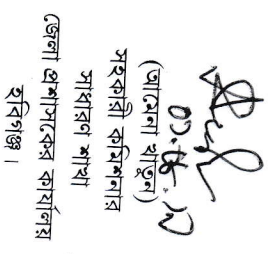 (আমেনা খাতুন)
সহকারী কমিশনার
সাধারণ শাখা
জেলা প্রশাসকের কার্যালয়
হবিগঞ্জ।